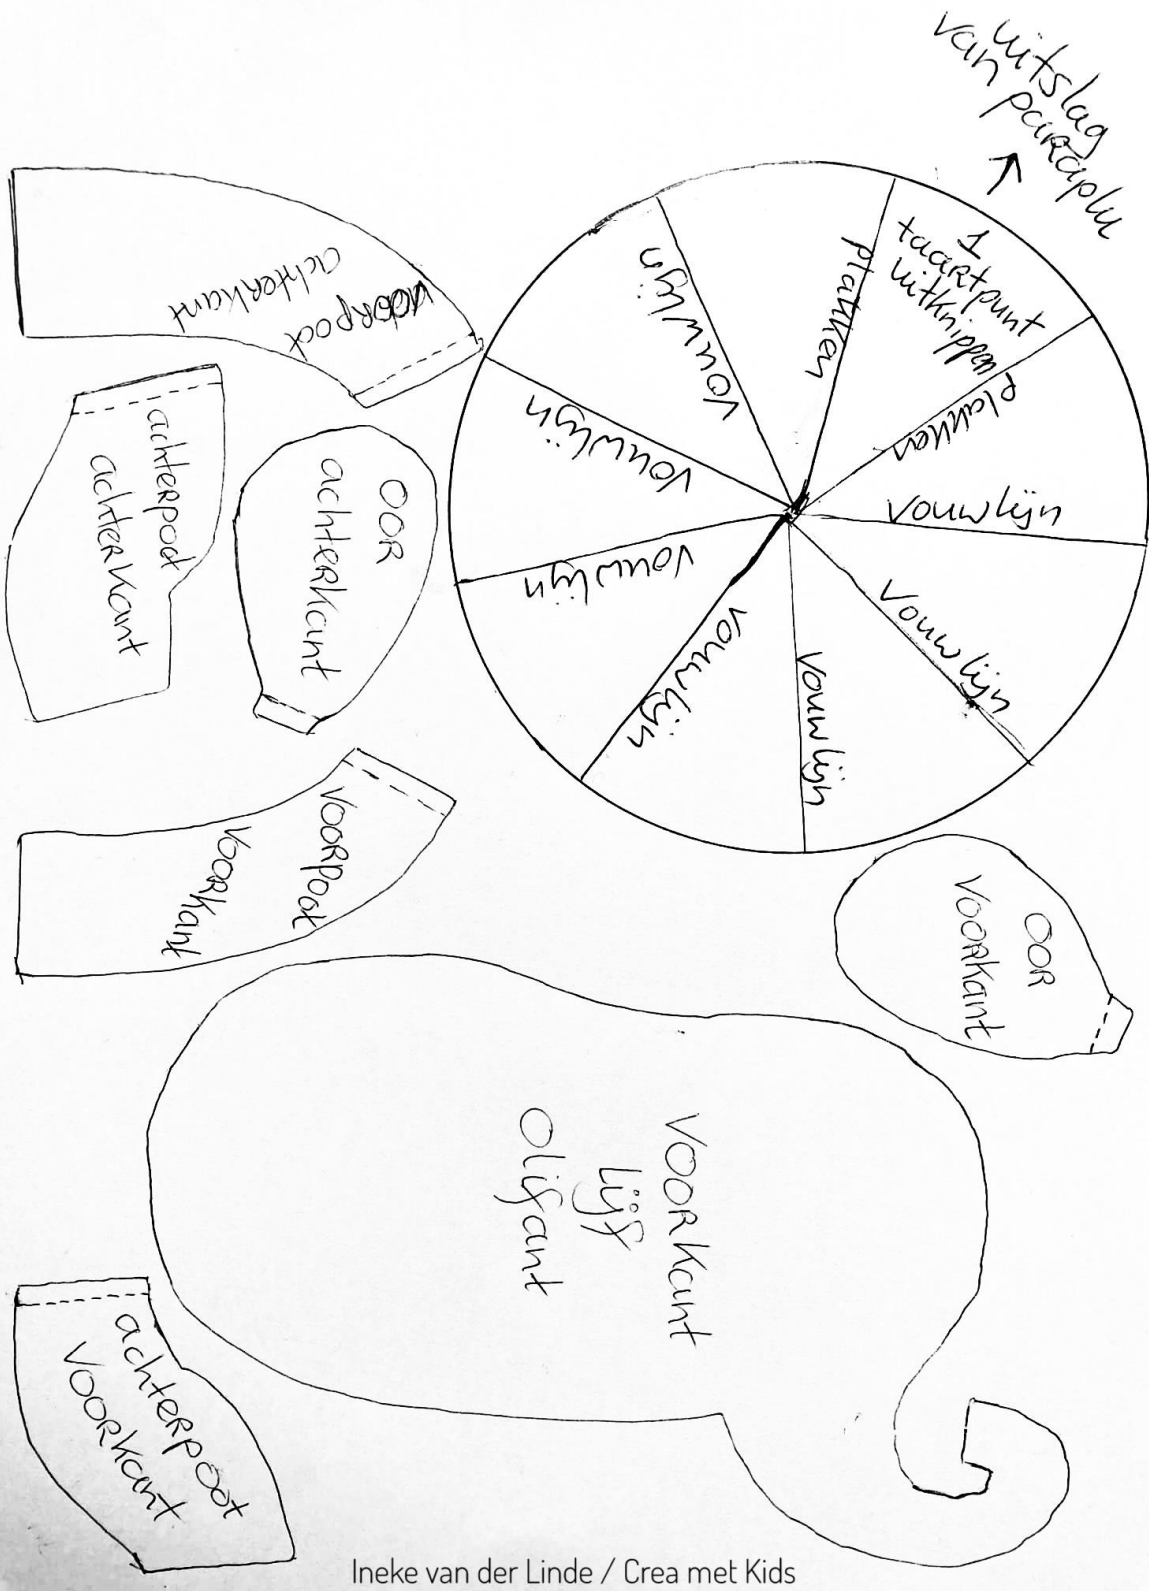 uitslag
van paraplu
1
taartpunt
uitknippen
plakken
plakken
vouwlijn
vouwlijn
vouwlijn
vouwlijn
vouwlijn
vouwlijn
vouwlijn
voorpoot
achterkant
achterpoot
achterkant
OOR
achterkant
voorpoot
voorkant
OOR
voorkant
voorkant
lijf
olifant
achterpoot
voorkant
Ineke van der Linde / Crea met Kids